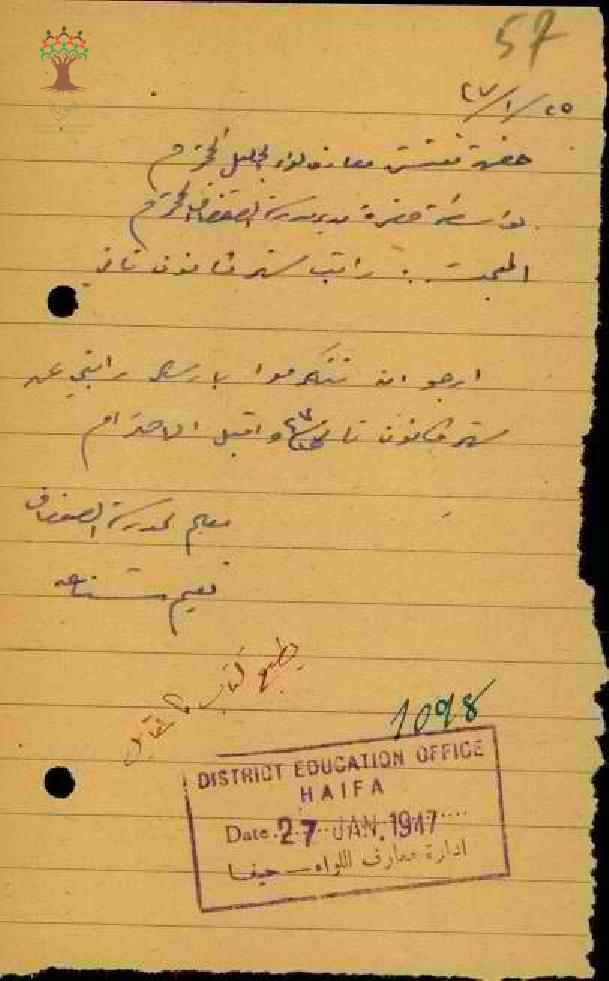 57
٢٥/١/٤٧
حضرة مفتش معارف لواء الجليل المحترم
بواسطة حضرة مدير مدرسة الصفصاف المحترم
المبحث : راتب شهر كانون ثاني
ارجو ان تتكرموا بارسال راتبي عن
شهر كانون ثاني واقبلوا الاحترام
معلم مدرسة الصفصاف
نعيم
كتاب
1098
DISTRICT EDUCATION OFFICE
HAIFA
Date 27 JAN. 1947
ادارة معارف اللواء - حيفا